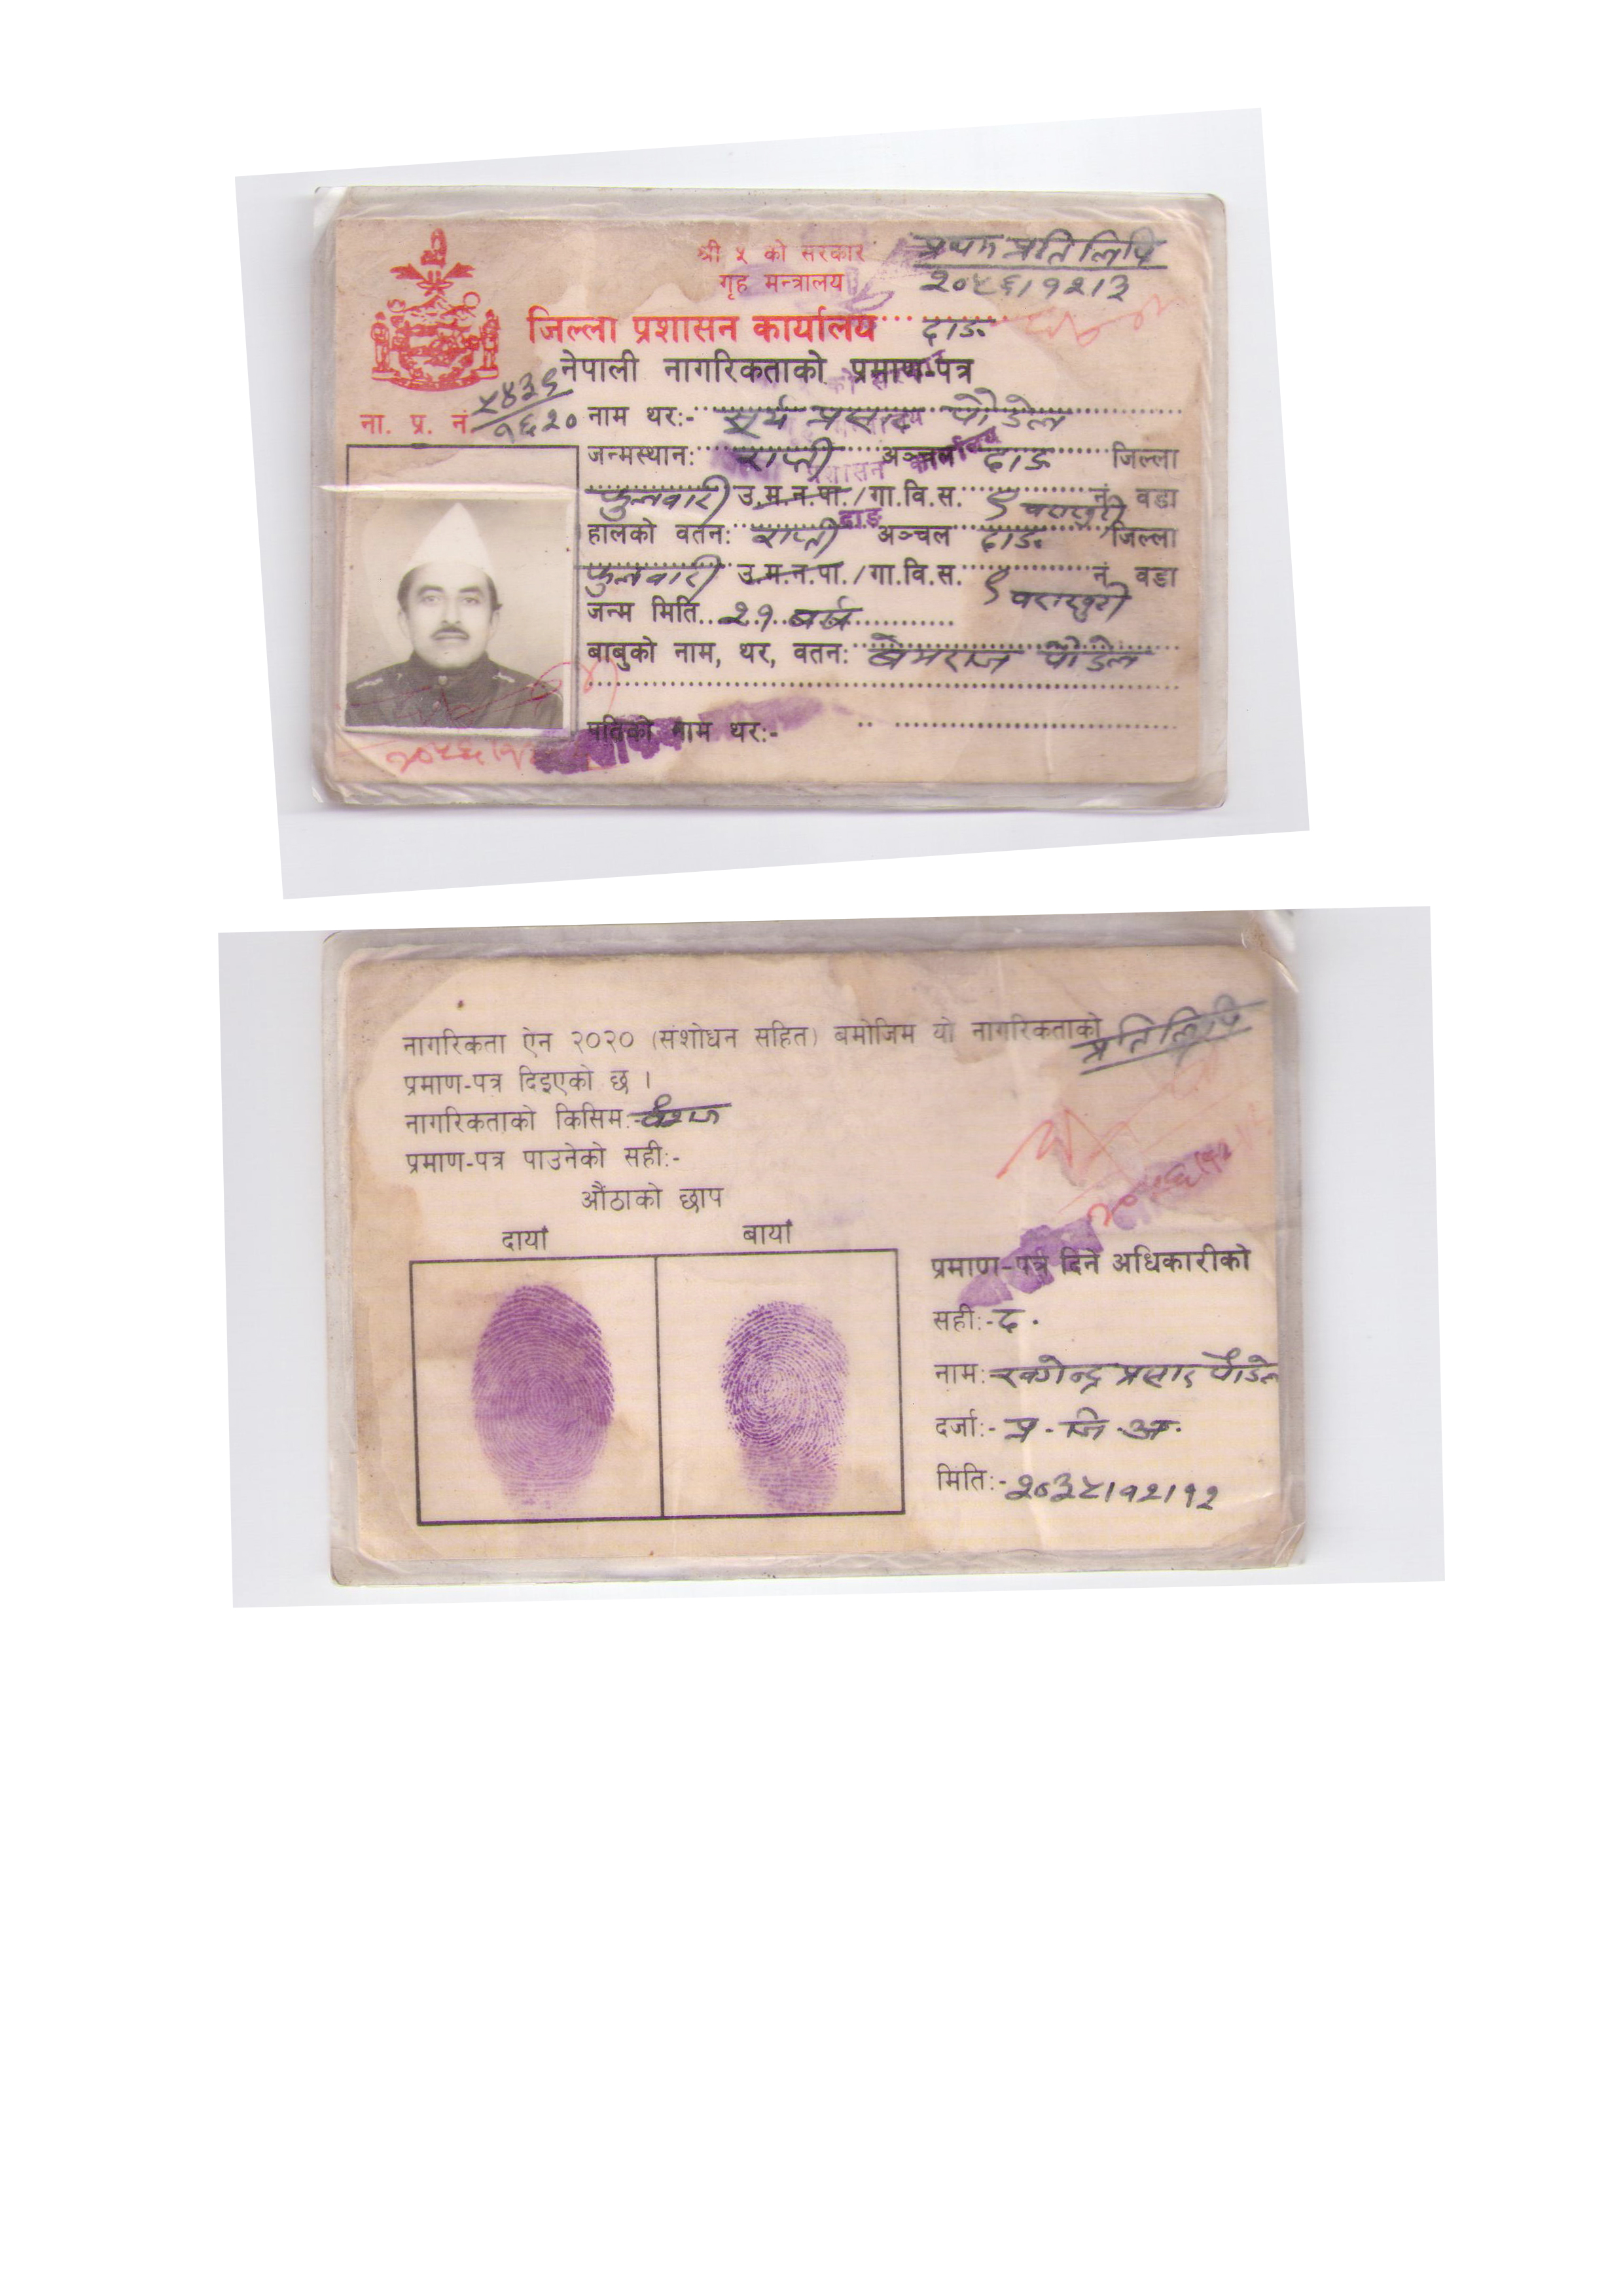 प्रथम प्रतिलिपि
२०५६।१२।३
श्री ५ को सरकार
गृह मन्त्रालय
जिल्ला प्रशासन कार्यालय दाङ
नेपाली नागरिकताको प्रमाण-पत्र
ना. प्र. नं ५४३६/१६२०
नाम थर:- सूर्य प्रसाद पौडेल
जन्मस्थान: राप्ती अञ्चल दाङ जिल्ला
फुलवारी उ.म.न.पा./गा.वि.स. ९ नं वडा
हालको वतन: राप्ती अञ्चल दाङ जिल्ला
फुलवारी उ.म.न.पा./गा.वि.स. ९ नं वडा
जन्म मिति २१ वर्ष
बाबुको नाम, थर, वतन: पौडेल
पतिको नाम थर:-
नागरिकता ऐन २०२० (संशोधन सहित) बमोजिम यो नागरिकताको
प्रतिलिपि
प्रमाण-पत्र दिइएको छ ।
नागरिकताको किसिम:- वंशज
प्रमाण-पत्र पाउनेको सही:-
औंठाको छाप
दायां बायां
प्रमाण-पत्र दिने अधिकारीको
सही:- द.
नाम: प्रसाद पौडेल
दर्जा:- प्र.जि.अ.
मिति:- २०३५।१२।१२